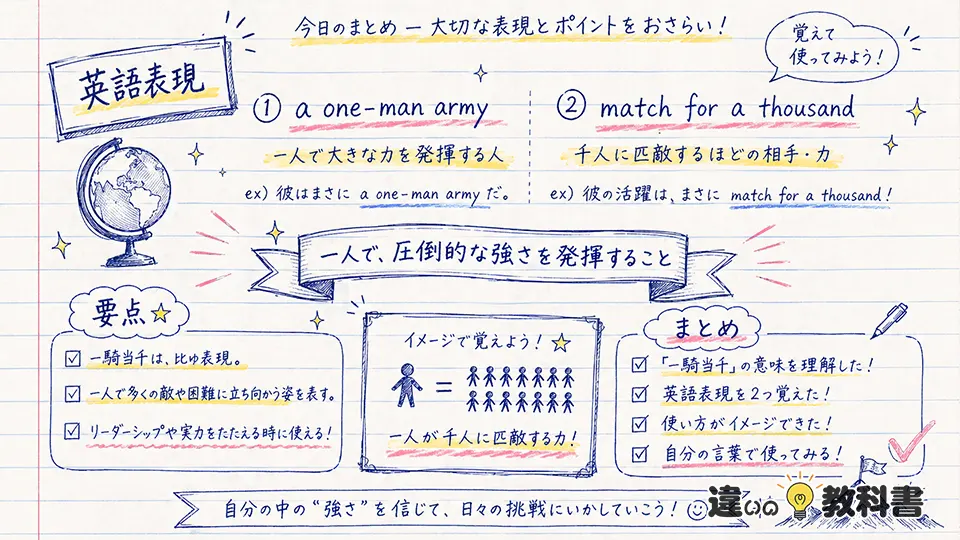 今日のまとめ ー 大切な表現とポイントをおさらい！
覚えて
使ってみよう！
英語表現
① a one-man army
一人で大きな力を発揮する人
ex) 彼はまさに a one-man army だ。
② match for a thousand
千人に匹敵するほどの相手・力
ex) 彼の活躍は、まさに match for a thousand！
一人で、圧倒的な強さを発揮すること
要点
一騎当千は、比ゆ表現。
一人で多くの敵や困難に立ち向かう姿を表す。
リーダーシップや実力をたたえる時に使える！
イメージで覚えよう！
=
一人が千人に匹敵する力！
まとめ
「一騎当千」の意味を理解した！
英語表現を2つ覚えた！
使い方がイメージできた！
自分の言葉で使ってみる！
自分の中の“強さ”を信じて、日々の挑戦にいかしていこう！
違いの教科書